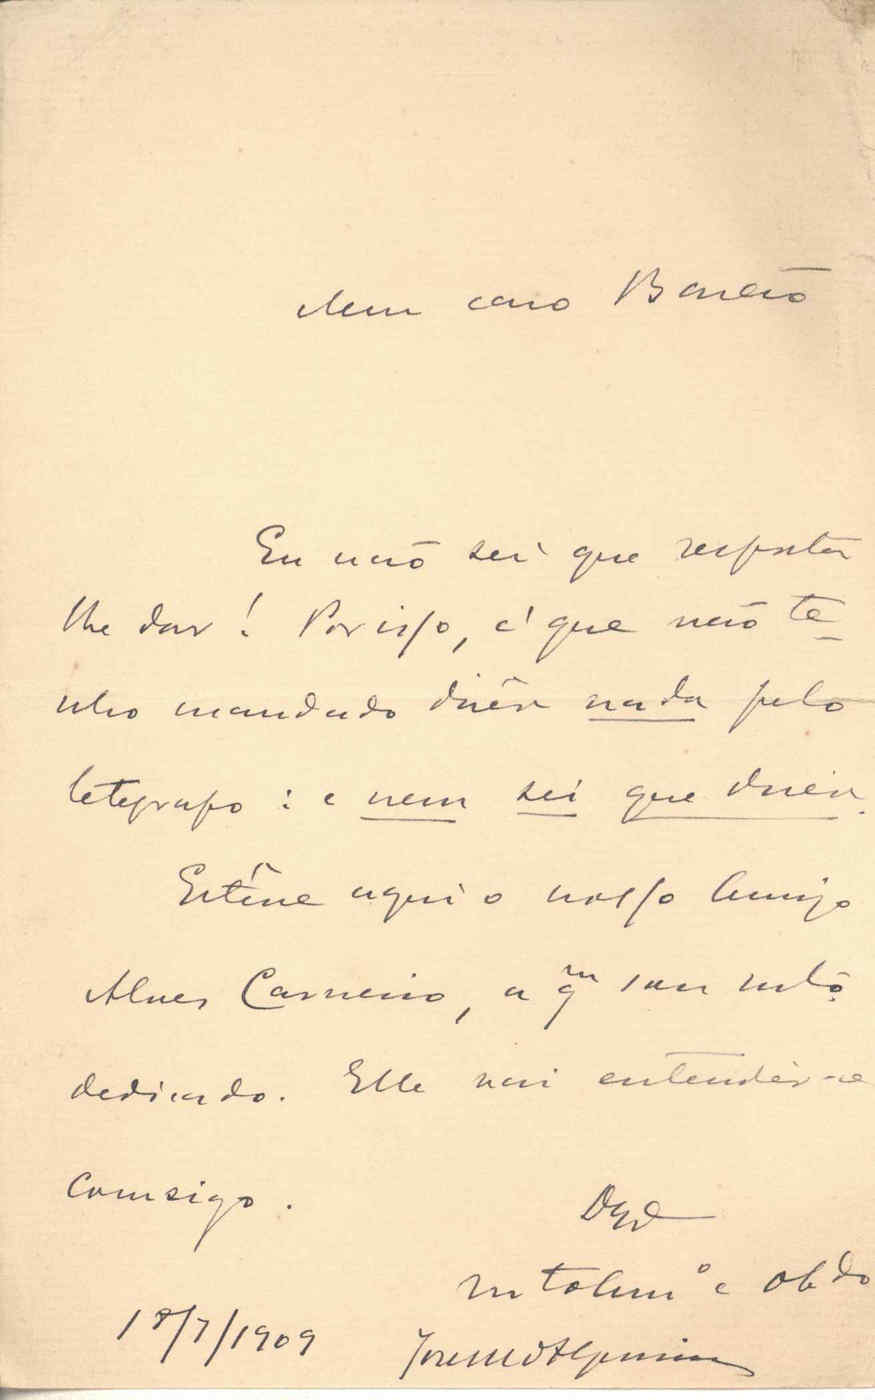 Meu caro Barão
Eu não sei que resposta
lhe dar! Por isso, é que não te-
nho mandado dizêr nada pelo
telegrafo: e nem sei que dizêr.
Estêve aqui o nosso Amigo
Alves Carneiro, a qm sou mto
dedicado. Elle vai entendêr-se
comsigo.
De Vª
mto amº e obdo
18/7/1909
José